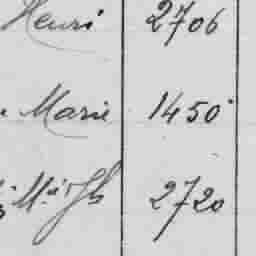 Henri 2706
Marie 1450
2720